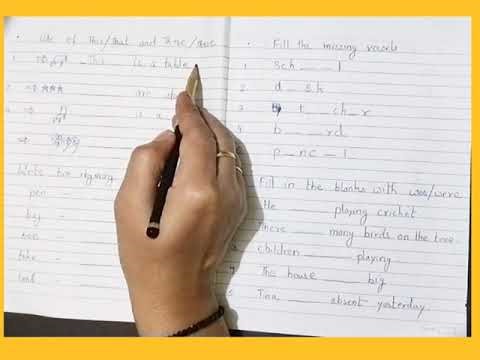 Use of This/that and These/those
1. This is a table
2. are
3. is a
Write two rhyming
pen -
big -
take -
Fill the missing vowels
1 Sch _ _ l
2 d _ sh
3 t _ _ ch _ r
4 b _ _ rd
p _ nc _ l
Fill in the blanks with was/were
He ____ playing cricket
There ____ many birds on the tree
children ____ playing
The house ____ big
Tina ____ absent yesterday